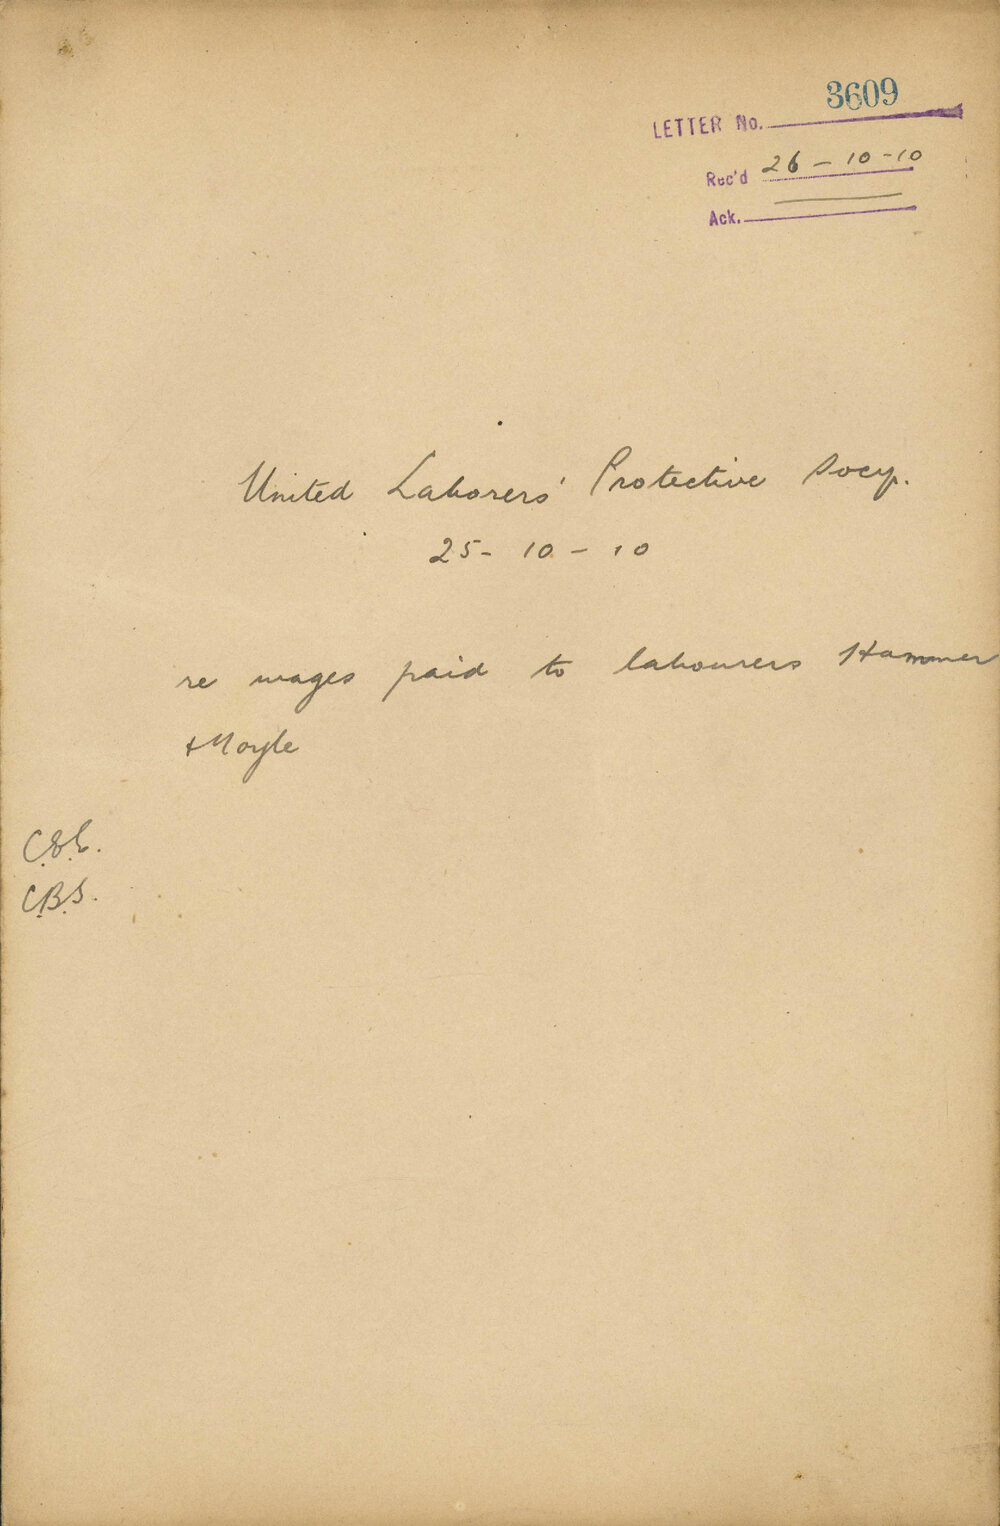 LETTER No. 3609
Rec'd 26-10-10
Ack.
United Laborers' Protective Socy.
25-10-10
re wages paid to labourers Hammer
& Moyle
C.B.S.